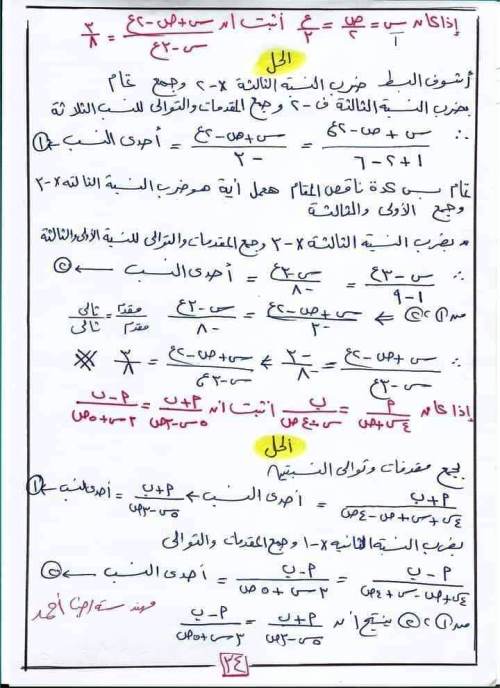 إذا كان س/١ = ص/٢ = ع/٣ أثبت أن (س + ص - ٢ع)/(س - ٣ع) = ٣/٨
الحل
أشوف البسط ضرب النسبة الثالثة × -٢ وجمع تمام
بضرب النسبة الثالثة فى -٢ وجمع المقدمات والتوالى للنسب الثلاثة
∴ (س + ص - ٢ع)/(١ + ٢ - ٦) = (س + ص - ٢ع)/-٣ = أحدى النسب ← ①
تمام بس كدة ناقص المقام هعمل أية هو ضرب النسبة الثالثه × -٣
وجمع الأولى والثالثة
∴ بضرب النسبة الثالثة × -٣ وجمع المقدمات والتوالى للنسبة الأولى والثالثة
∴ (س - ٣ع)/(١ - ٩) = (س - ٣ع)/-٨ = أحدى النسب ← ②
من ① ، ② ⇐ (س + ص - ٢ع)/-٣ = (س - ٣ع)/-٨ مقدم/مقدم = تالى/تالى
∴ (س + ص - ٢ع)/(س - ٣ع) = -٣/-٨ ⇐ (س + ص - ٢ع)/(س - ٣ع) = ٣/٨
إذا كان أ/(٤س + ص) = ب/(س - ٤ص) اثبت أن (أ + ب)/(٥س - ٣ص) = (أ - ب)/(٣س + ٥ص)
الحل
بجمع مقدمات وتوالى النسبتين
(أ + ب)/(٤س + ص + س - ٤ص) = أحدى النسب ← (أ + ب)/(٥س - ٣ص) = أحدى النسب ← ①
بضرب النسبة الثانيه × -١ وجمع المقدمات والتوالى
(أ - ب)/(٤س + ص - س + ٤ص) = (أ - ب)/(٣س + ٥ص) = أحدى النسب ← ②
من ① ، ② ينتج أن (أ + ب)/(٥س - ٣ص) = (أ - ب)/(٣س + ٥ص)
٢٤